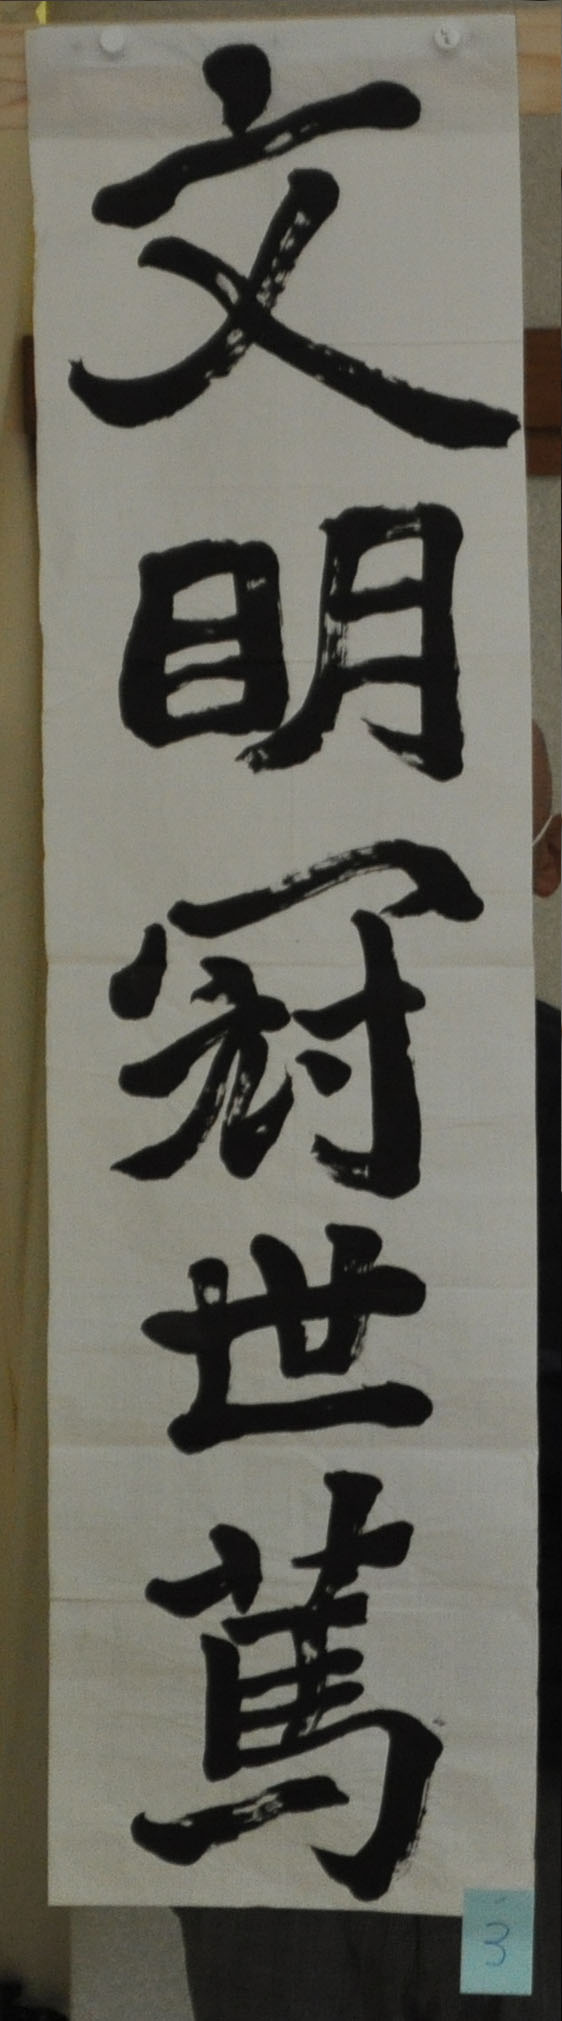 文明冠世篤
3